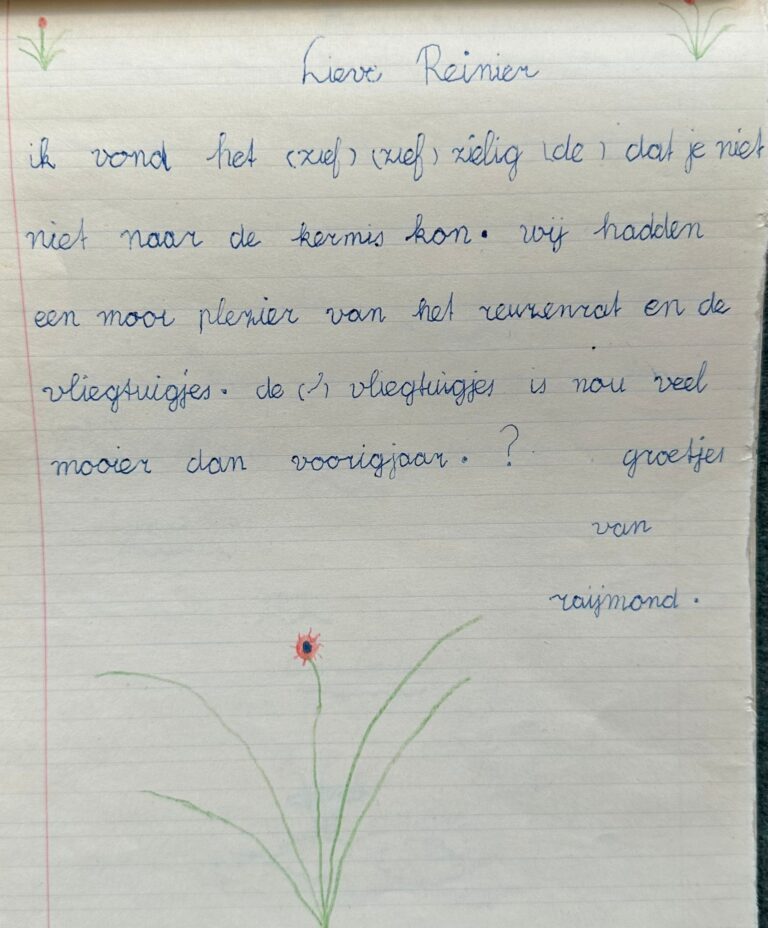 Lieve Reinier
ik vond het (zief) (zief) zielig (de) dat je niet
niet naar de kermis kon. wij hadden
een mooi plezier van het reuzenrat en de
vliegtuigjes. de (') vliegtuigjes is nou veel
mooier dan voorigjaar. ? groetjes
van
raijmond.